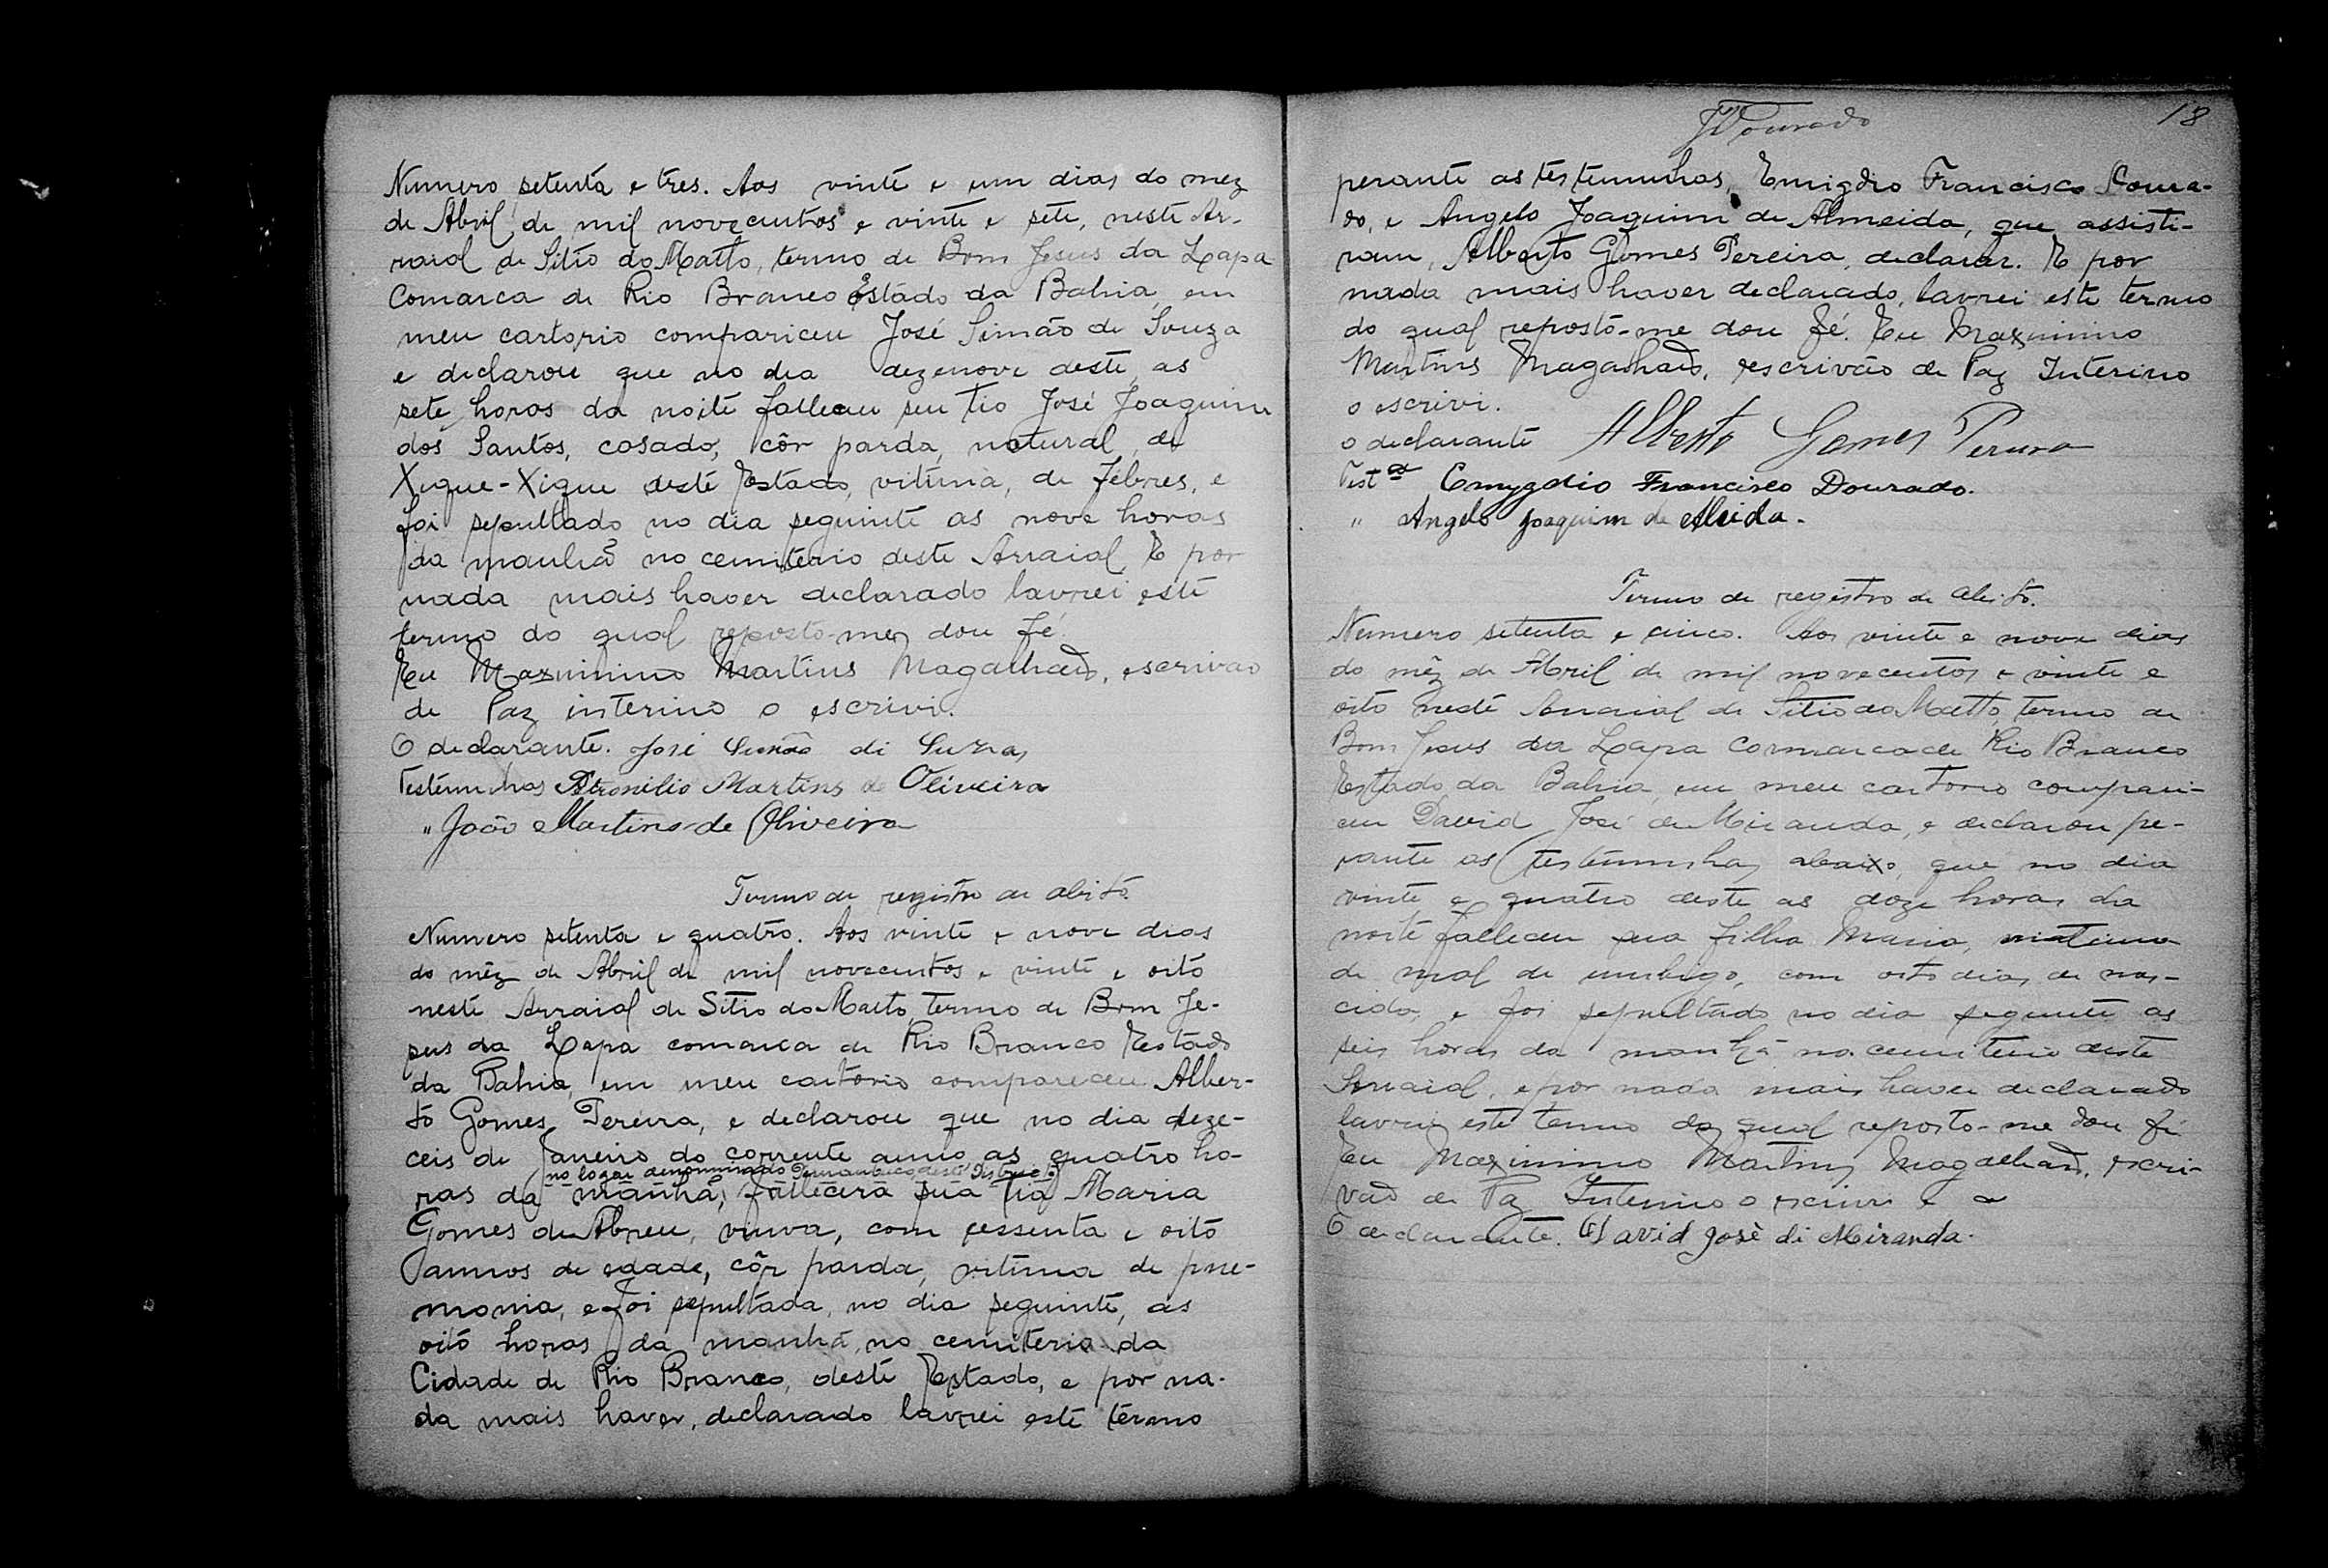 Numero setenta e tres. Aos vinte e um dias do mez
de Abril de mil novecentos e vinte e sete, neste Ar-
raial de Sitio do Matto, termo de Bom Jesus da Lapa
Comarca de Rio Branco Estado da Bahia, em
meu cartorio compariceu José Simão de Souza
e declarou que no dia dezenove deste, as
sete horas da noite falleceu seu tio José Joaquim
dos Santos, casado, côr parda, natural de
Xique-Xique deste Estado, vitima, de Febres, e
foi sepultado no dia seguinte as nove horas
da manhã no cemiterio deste Arraial, E por
nada mais haver declarado lavrei este
termo do qual reposto-me, dou fé.
Eu Maxminino Martins Magalhães, escrivão
de Paz interino o escrivi.
O declarante. José Simão di Suzas
Testemunhas Petronilio Martins de Oliveira
" João Martins de Oliveira
Termo de registro de abito.
Numero setenta e quatro. Aos vinte e nove dias
do mêz de Abril de mil novecentos e vinte e oito
neste Arraial de Sitio do Matto, termo de Bom Je-
sus da Lapa comarca de Rio Branco Estado
da Bahia, em meu cartorio compareceu Alber-
to Gomes Pereira, e declarou que no dia deze-
ceis de Janeiro do corrente anno as quatro ho-
no logar denominado Pernambuco deste Districto
ras da manhã, fallecera sua tia Maria
Gomes de Abreu, viuva, com sessenta e oito
annos de edade, côr parda, vitima de pne-
monia, e foi sepultada, no dia seguinte, as
oito horas da manhã, no cemiterio da
Cidade de Rio Branco, deste Estado, e por na-
da mais haver, declarado lavrei este termo
Dourado 18
perante as testemunhas, Emigdio Francisco Doura-
do, e Angelo Joaquim de Almeida, que assisti-
ram, Alberto Gomes Pereira, declarar. E por
nada mais haver declarado, lavrei este termo
do qual reposto-me dou fé. Eu Maxminino
Martins Magalhães, escrivão de Paz Interino
o escrivi.
o declarante Alberto Gomes Pereira
Test as Emygdio Francisco Dourado.
" Angelo Joaquim de Alieida.
Termo de registro de abito.
Numero setenta e cinco. Aos vinte e nove dias
do mêz de Abril de mil novecentos e vinte e
oito neste Arraial de Sitio do Matto, termo de
Bom Jesus da Lapa comarca de Rio Branco
Estado da Bahia, em meu cartorio compari-
ceu David José de Miranda, e declarou pe-
rante as testemunhas abaixo, que no dia
vinte e quatro deste as doze horas da
noite falleceu sua filha Maria, vitima
de mal de umbigo, com oito dias de nas-
cida, e foi sepultado no dia seguinte as
seis horas da manhã no cemiterio deste
Arraial, e por nada mais haver declarado
lavrei este termo do qual reposto-me dou fé
Eu Maximinino Martins Magalhães, escri-
vão de Paz Interino o escrivi e
O declarante. David José di Miranda.